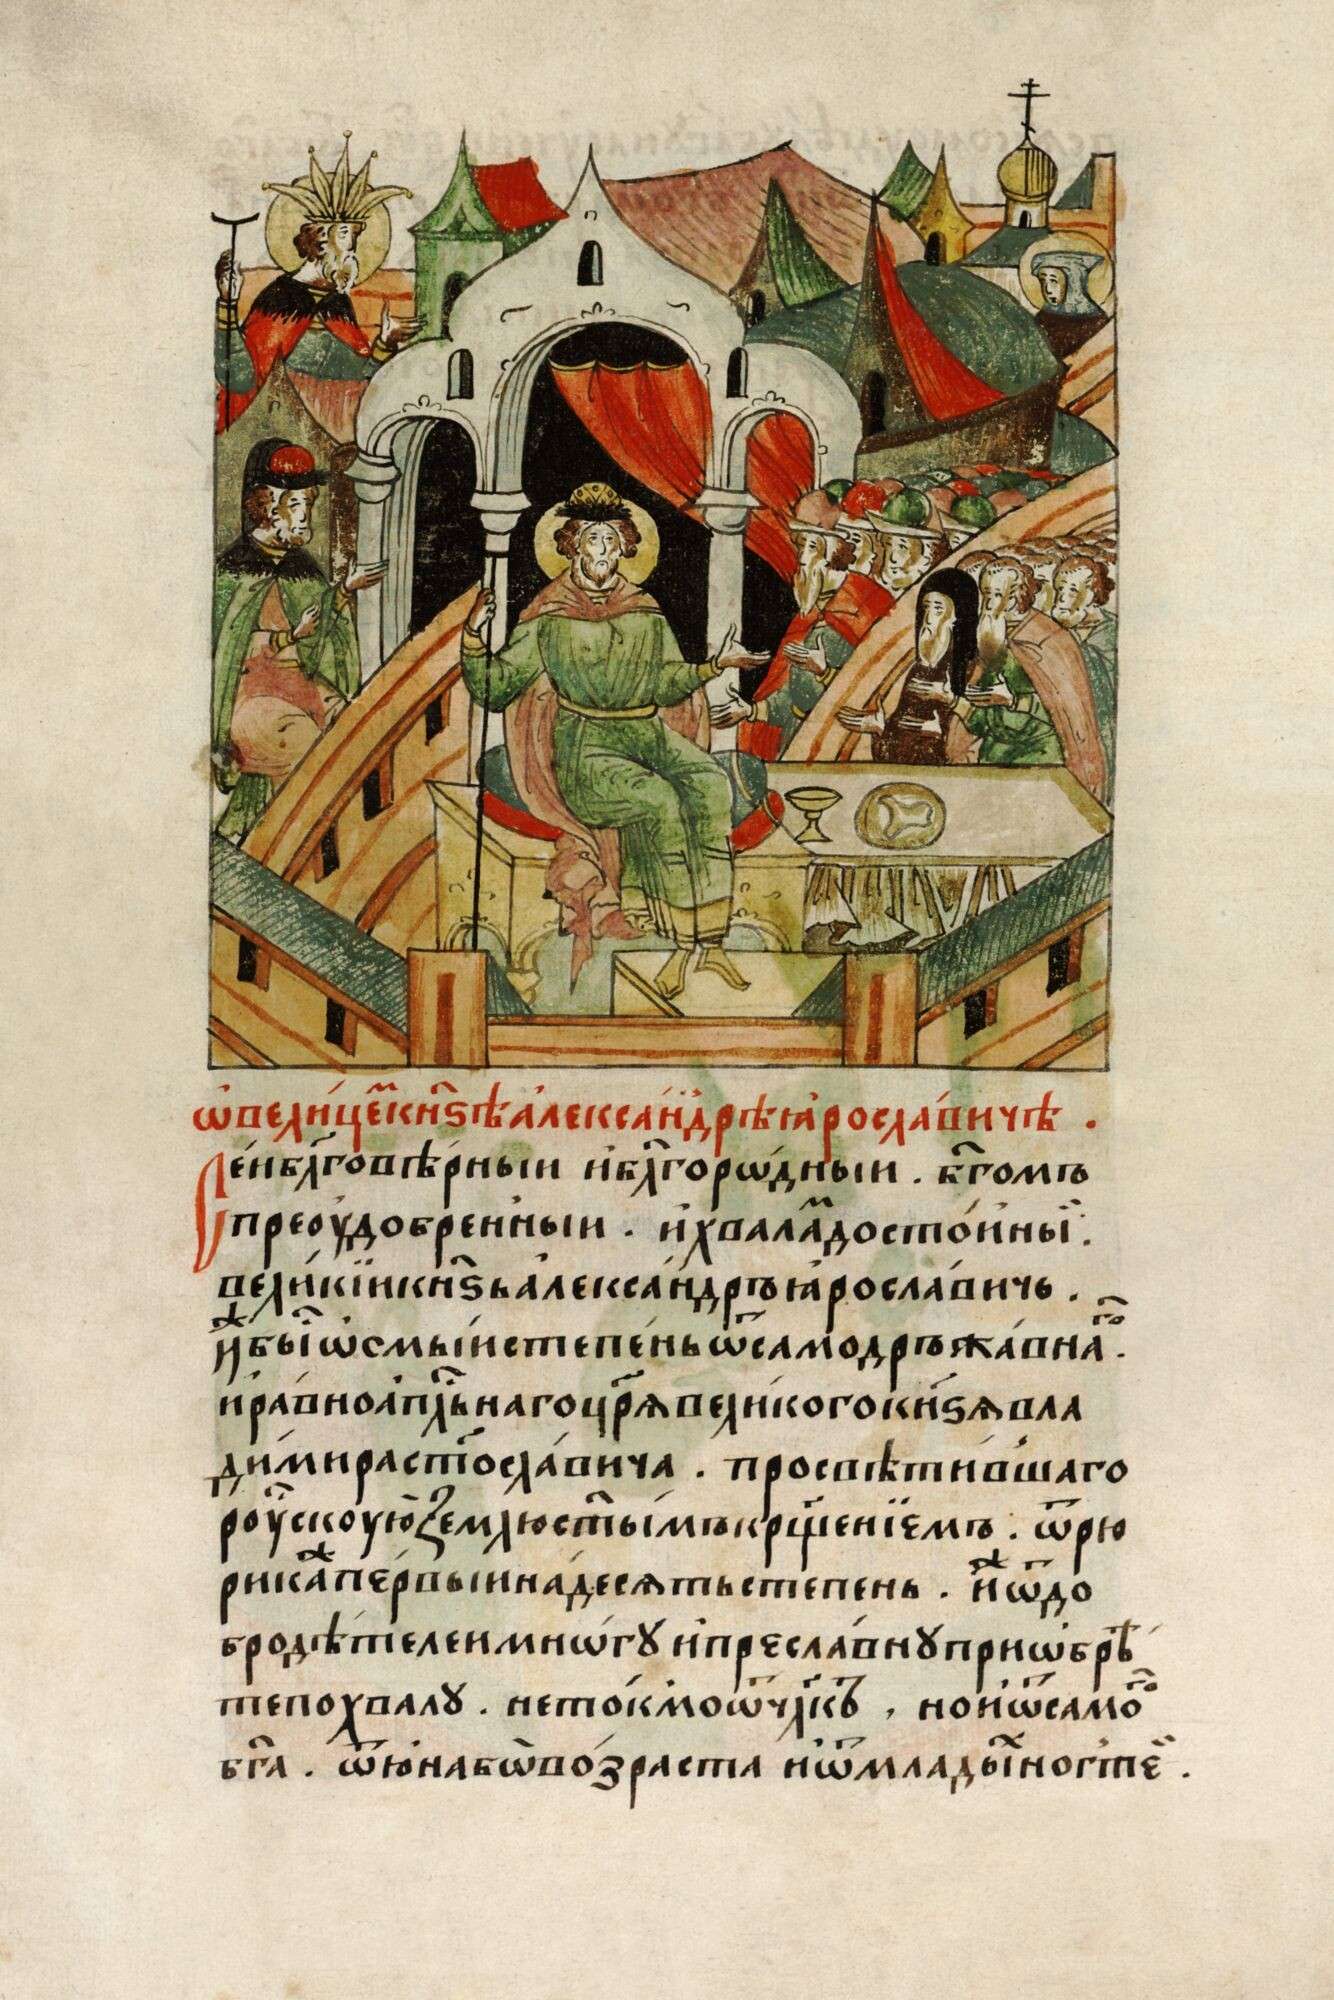 ѡ҆вели́цемкн҃ѕѣа҆леѯа́ндрѣꙗ҆росла́вичѣ .
Сеи҆бл҃говѣ́рныи и҆бл҃горѡ́дныи . бг҃омъ
преꙋдо́бренныи . и҆хвала́мдосто́ины .
вели́кїикн҃ѕьа҆леѯа́ндръꙗ҆росла́вичь .
и҆́жбы́сѡ҆смы́истепе́ньѿсамодръжа́внаг .
и҆ра́вноа҆пⷭ҇льнагоцр҃ѧвели́когокн҃ѕѧвла
ди́мирасто҃сла́вича . просвѣти́вшаго
рꙋ́скꙋюземлюст҃ы́мъкрще́нїемъ . ѿрю
рикажпе́рвыинадесѧтьстепе́нь . и҆́жѿдо
бродѣ́телеимнѡ́гꙋ и҆пресла́внꙋприѡбрѣ́
тепохвалꙋ . нето́кмоѿчл҃къ , нои҆ѿсамог
бг҃а . ѿю҆набѡво́зраста и҆ѿмлады́хногте́и .